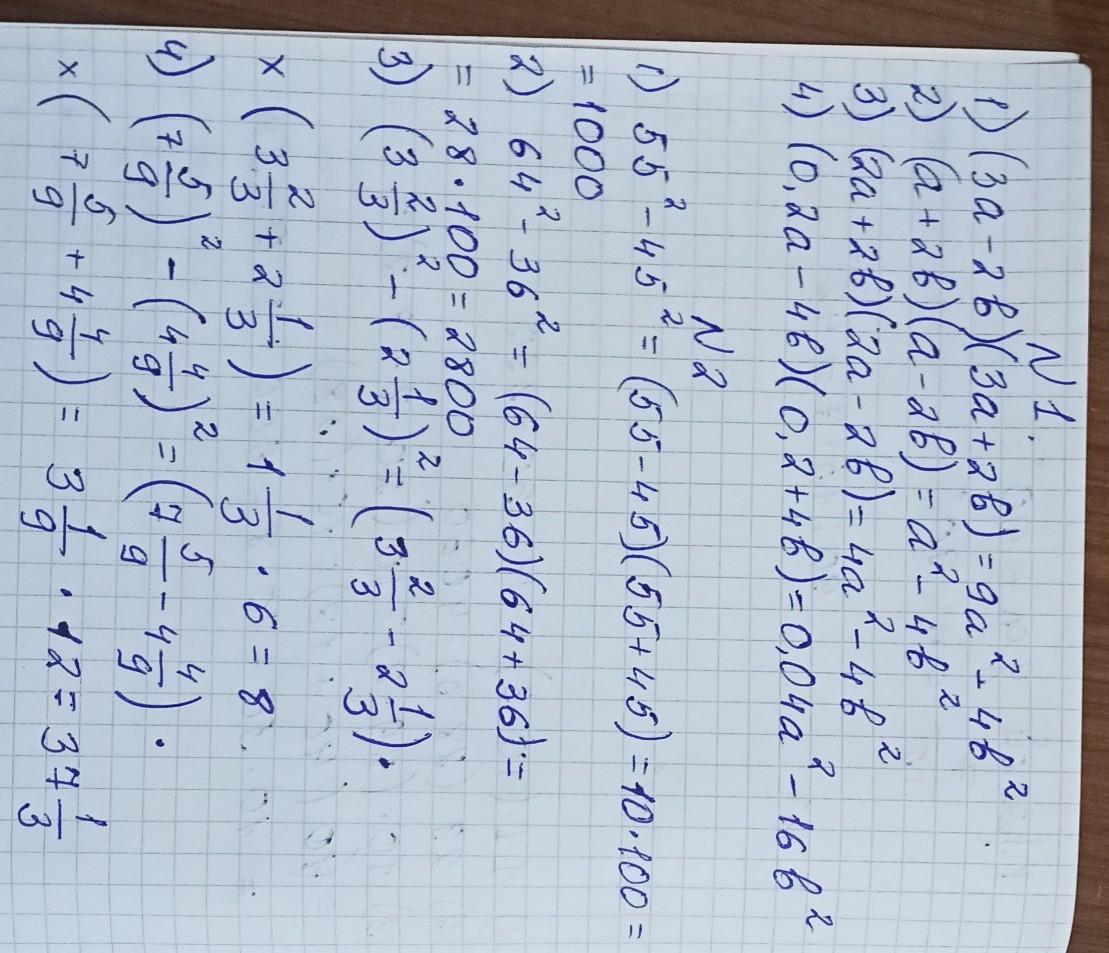 N1.
1) (3a-2b)(3a+2b)=9a²-4b²
2) (a+2b)(a-2b)=a²-4b²
3) (2a+2b)(2a-2b)=4a²-4b²
4) (0,2a-4b)(0,2+4b)=0,04a²-16b²
N2
1) 55²-45²=(55-45)(55+45)=10·100=
=1000
2) 64²-36²=(64-36)(64+36)=
=28·100=2800
3) (3 2/3)²-(2 1/3)²=(3 2/3-2 1/3)·
×(3 2/3+2 1/3)=1 1/3·6=8
4) (7 5/9)²-(4 4/9)²=(7 5/9-4 4/9)·
×(7 5/9+4 4/9)=3 1/9·12=37 1/3